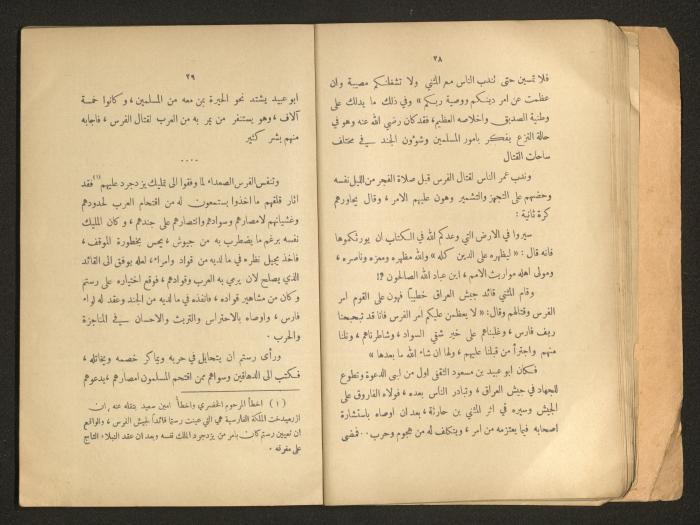 ٣٨
فلا تمسين حتى تندب الناس مع المثني ولا تشغلنكم مصيبة وان
عظمت عن امر دينكم ووصية ربكم» وفي ذلك ما يدلك على
وطنية الصديق واخلاصه العظيم، فقد كان رضي الله عنه وهو في
حالة النزع يفكر بامور المسلمين وشؤون الجند في مختلف
ساحات القتال
وندب عمر الناس لقتال الفرس قبل صلاة الفجر من الليل نفسه
وحضهم على التجهز والتشمير وهون عليهم الامر، وقال يحاورهم
كرة ثانية :
سيروا في الارض التي وعدكم الله في الكتاب ان يورثكموها
فانه قال: «ليظهره على الدين كله» والله مظهره ومعزه وناصره،
ومولى اهله مواريث الامم، اين عباد الله الصالحون ؟!
وقام المثني قائد جيش العراق خطيباً فهون على القوم امر
الفرس وقتالهم وقال: «لا يعظمن عليكم امر الفرس فانا قد تبحبحنا
ريف فارس، وغلبناهم على خير شقي السواد، وشاطرناهم، ونلنا
منهم واجترأ من قبلنا عليهم، ولها ان شاء الله ما بعدها»
فكان ابو عبيد بن مسعود الثقفي اول من لبى الدعوة وتطوع
للجهاد في جيش العراق، وتبادر الناس بعده، فولاه الفاروق على
الجيش وسيره في اثر المثني بن حارثة، بعد ان اوصاه باستشارة
اصحابه فيما يعتزمه من امر، ويتكلف له من هجوم وحرب ... فمضى
٣٩
ابو عبيد يشتد نحو الحيرة بمن معه من المسلمين، وكانوا خمسة
آلاف، وهو يستنفر من يمر به من العرب لقتال الفرس، فاجابه
منهم بشر كثير
....
وتنفس الفرس الصعداء لما وفقوا الى تمليك يزدجرد عليهم(١) فقد
اثار قلقهم ما اخذوا يستمعون له من اقتحام العرب لحدودهم
وغشيانهم لامصارهم وسوادهم وانتصارهم على جندهم، وكان المليك
نفسه برغم ما يضطرب به من جيوش، يحس بخطورة الموقف،
فاخذ يجيل نظره في ما لديه من قواد وامراء، لعله يوفق الى القائد
الذي يصلح لان يرمي به العرب وقوادهم، فوقع اختياره على رستم
وكان من مشاهير قواده، فانفذه في ما لديه من الجند وعقد له لواء
فارس، واوصاه بالاحتراس والتريث والاحسان في المناجزة
والحرب .
ورأى رستم ان يتحايل في حربه ويماكر خصمه ويخاتله،
فكتب الى الدهاقين وسواهم ممن اقتحم المسلمون امصارهم، يدعوهم
(١) اخطأ المرحوم الخضري واخطأ امين سعيد بنقله عنه، ان
ازرميدخت الملكة الفارسية هي التي عينت رستما قائداً لجيش الفرس، والواقع
ان تعيين رستم كان بامر من يزدجرد الملك نفسه وبعد ان عقد النبلاء التاج
على مفرقه .